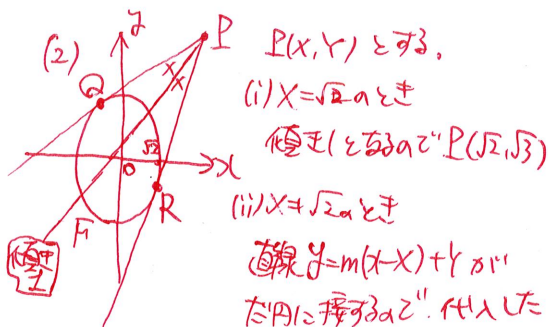 (2)
y
P
Q
√2
O
x
R
F
傾き
1
P(X,Y)とする。
(i) X=√2のとき
傾き1となるのでP(√2,√3)
(ii) X≠√2のとき
直線y=m(x-X)+Yが
だ円に接するので、代入した